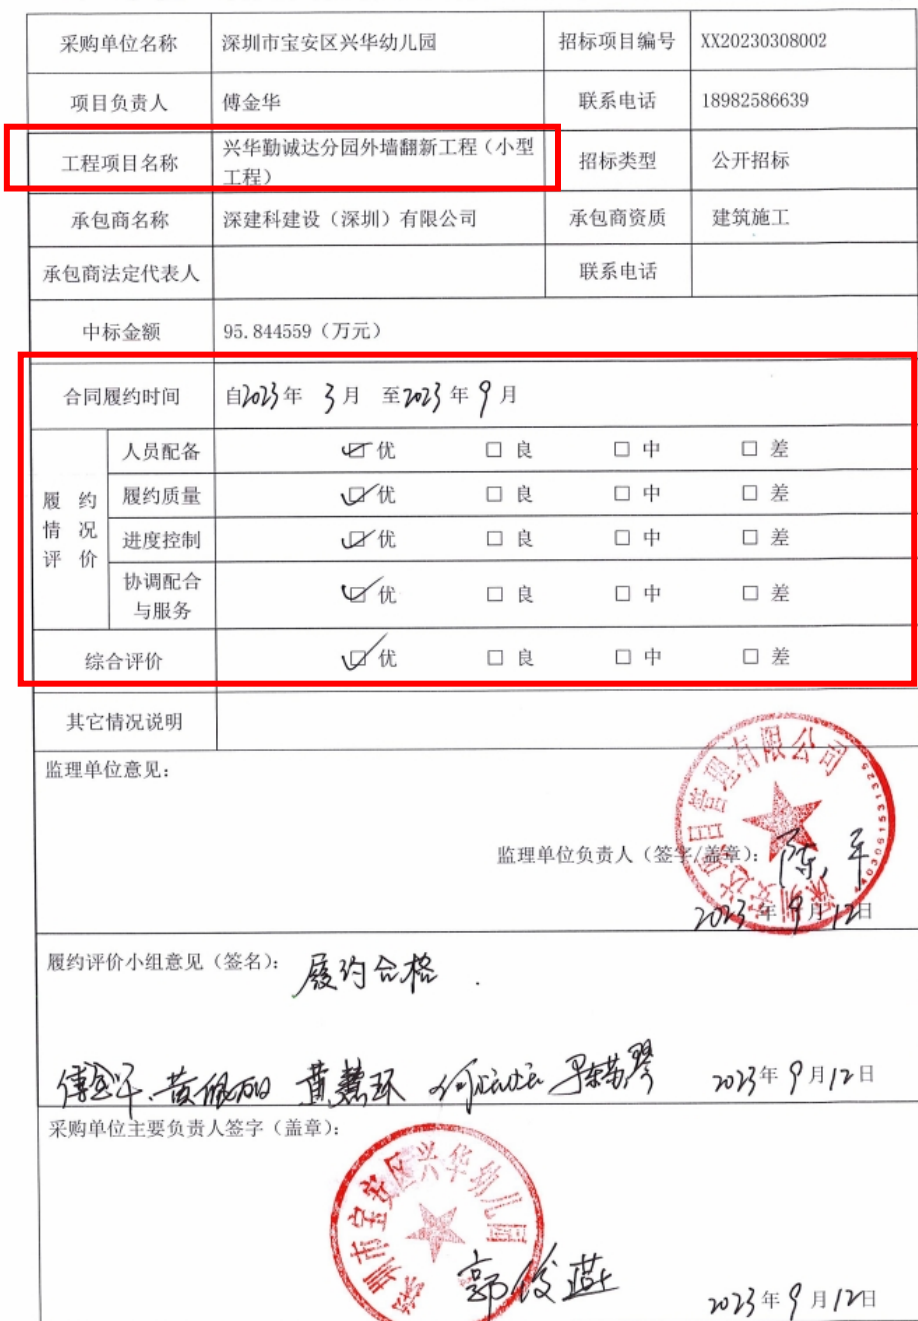 采购单位名称 深圳市宝安区兴华幼儿园 招标项目编号 XX20230308002
项目负责人 傅金华 联系电话 18982586639
工程项目名称 兴华勤诚达分园外墙翻新工程（小型
工程） 招标类型 公开招标
承包商名称 深建科建设（深圳）有限公司 承包商资质 建筑施工
承包商法定代表人 联系电话
中标金额 95.844559（万元）
合同履约时间 自2023年 3月 至2023年 9月
履约
情况
评价
人员配备 ☑优 □良 □中 □差
履约质量 ☑优 □良 □中 □差
进度控制 ☑优 □良 □中 □差
协调配合
与服务 ☑优 □良 □中 □差
综合评价 ☑优 □良 □中 □差
其它情况说明
监理单位意见：
监理单位负责人（签字/盖章）：
项目管理有限公司
2023年9月12日
履约评价小组意见（签名）： 履约合格.
黄慧环
2023年9月12日
采购单位主要负责人签字（盖章）：
深圳市宝安区兴华幼儿园
郭俊燕
2023年9月12日